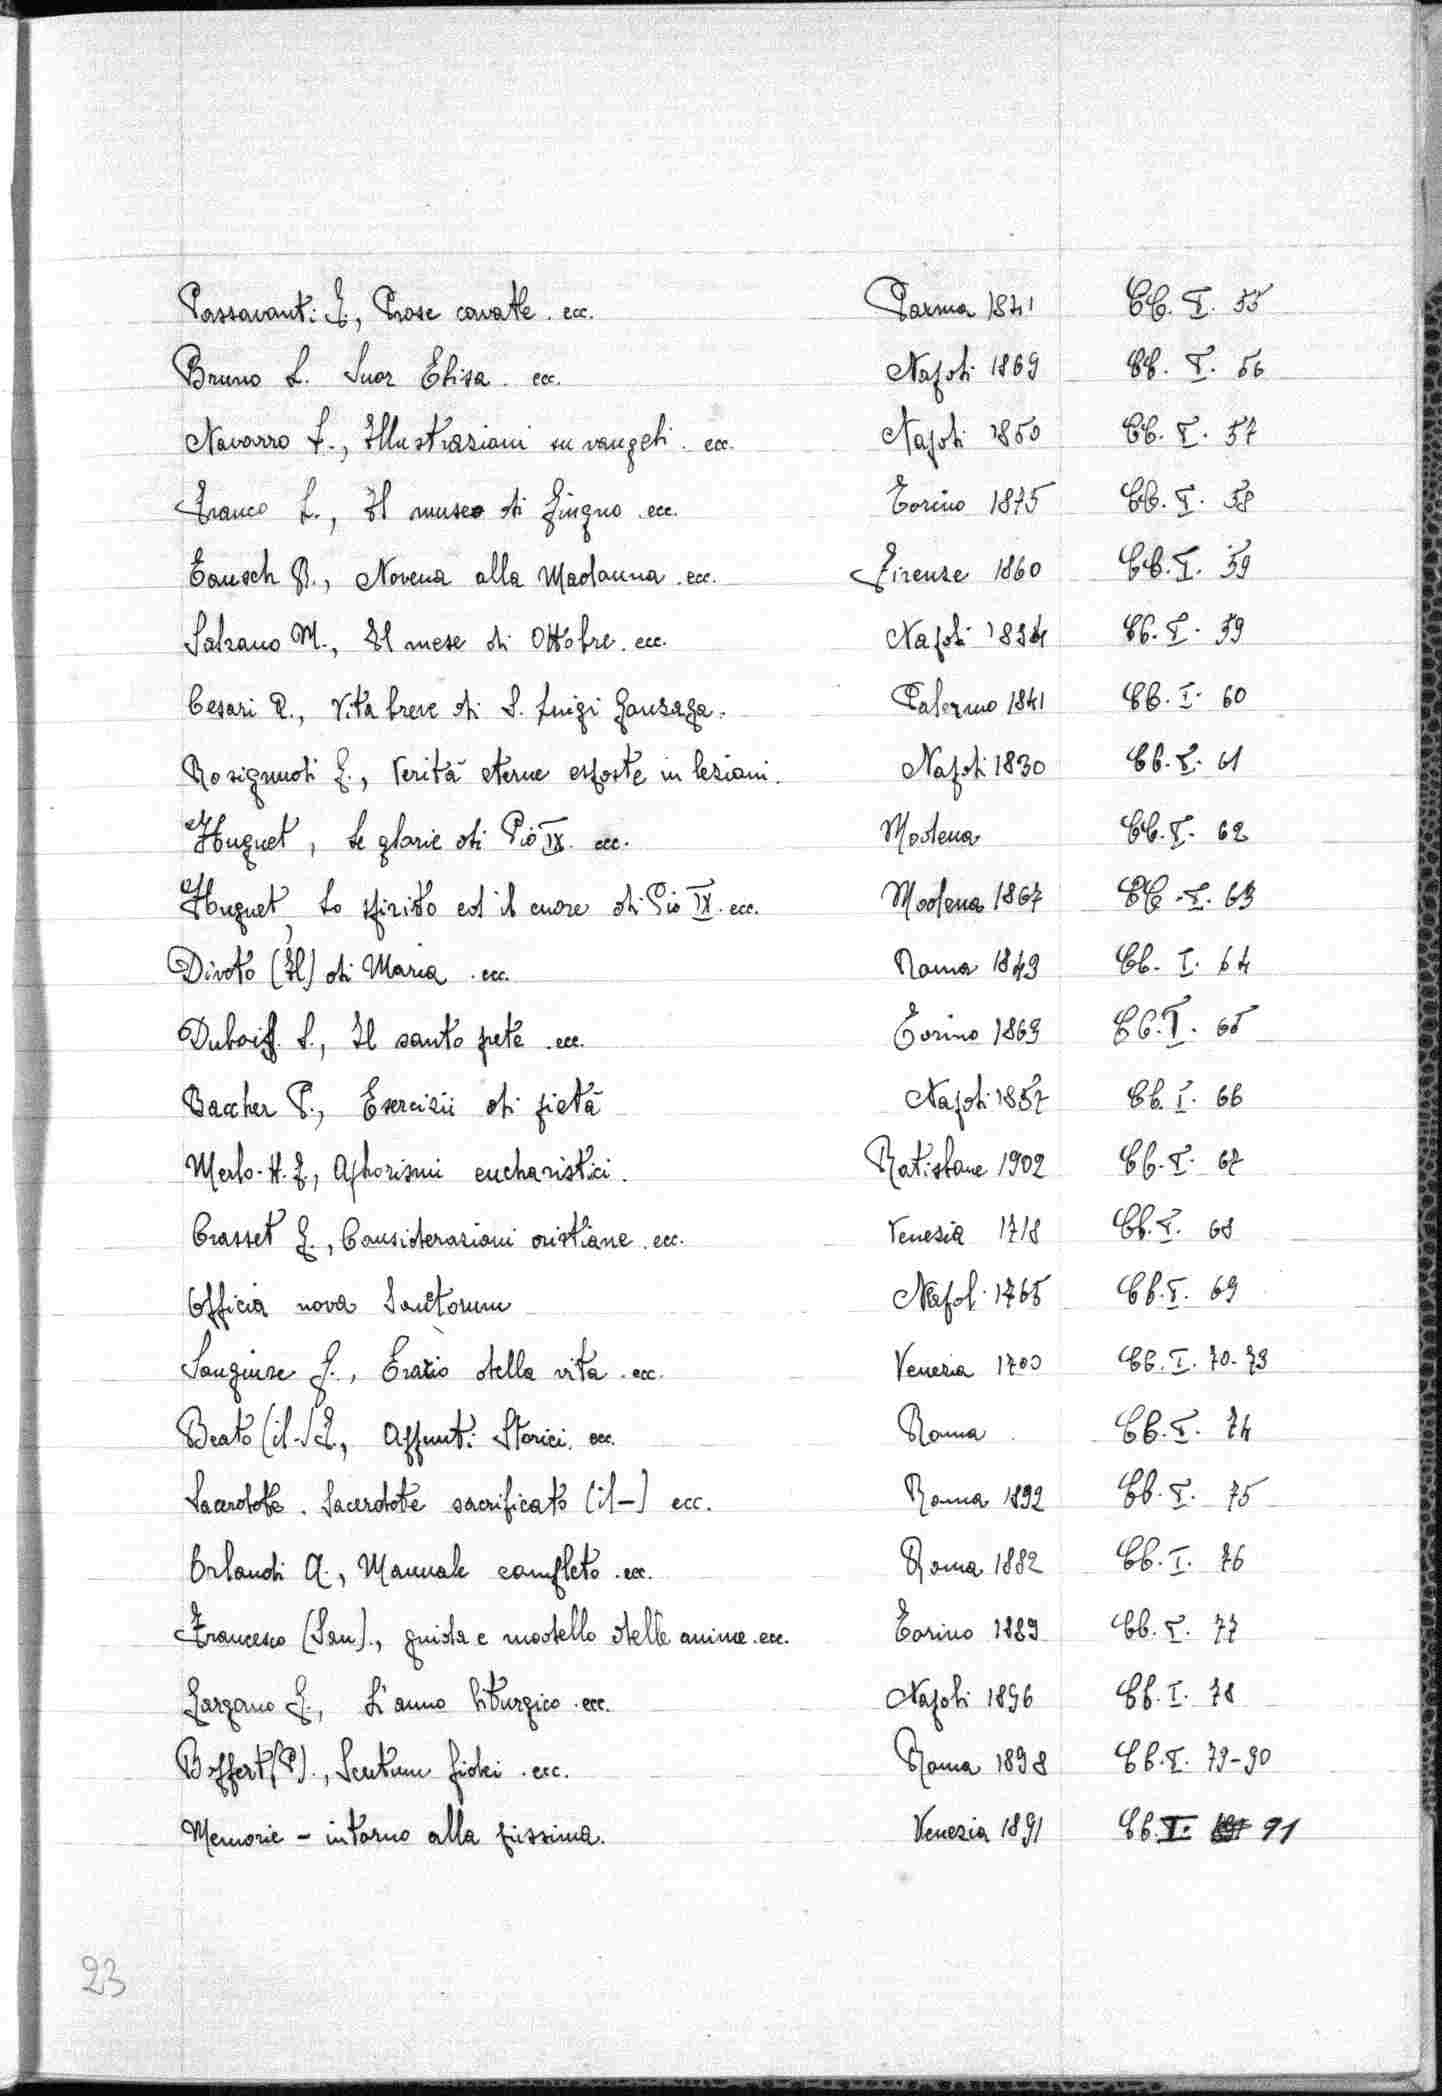 Passavanti J., Prose cavate. ecc. Parma 1841 CC. I. 55
Bruno L. Suor Elisa. ecc. Napoli 1869 CC. I. 56
Navarro L., Illustrazioni su vangeli. ecc. Napoli 1850 CC. I. 57
Franco L., Il museo di Giugno. ecc. Torino 1875 CC. I. 58
Tausch B., Novena alla Madonna. ecc. Firenze 1860 CC. I. 59
Salzano M., Il mese di Ottobre. ecc. Napoli CC. I. 59
Cesari A., Vita breve di S. Luigi Gonzaga. Palermo 1841 CC. I. 60
Rosignuoli G., Verità eterne esposte in lezioni. Napoli 1830 CC. I. 61
Huguet, Le glorie di Pio IX. ecc. Modena CC. I. 62
Huguet, Lo spirito ed il cuore di Pio IX. ecc. Modena 1867 CC. I. 63
Divoto (Il) di Maria. ecc. Roma 1849 CC. I. 64
Dubois. S., Il santo prete. ecc. Torino 1869 CC. I. 65
Baccher P., Esercizii di pietà Napoli 1857 CC. I. 66
Merlo-H. J., Aphorismi eucharistici. Ratisbone 1902 CC. I. 67
Crasset G., Considerazioni cristiane. ecc. Venezia 1718 CC. I. 68
Officia nova Sanctorum Napol. 1765 CC. I. 69
Sangiure G., Erario della vita. ecc. Venezia 1700 CC. I. 70-73
Beato (il-) Appunti Storici. ecc. Roma CC. I. 74
Sacerdote. Sacerdote sacrificato (il-) ecc. Roma 1892 CC. I. 75
Orlandi A., Manuale completo. ecc. Roma 1882 CC. I. 76
Francesco (San)., guida e modello delle anime. ecc. Torino 1889 CC. I. 77
Gargano G., L'anno liturgico. ecc. Napoli 1896 CC. I. 78
Boffert (P)., Scutum fidei. ecc. Roma 1898 CC. I. 79-90
Memorie - intorno alla piissima. Venezia 1891 CC. I. 91
23